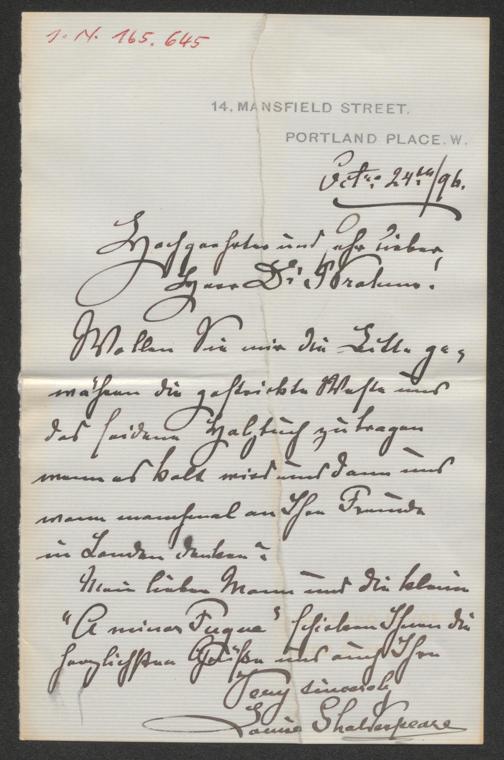 I. N. 165.645
14, MANSFIELD STREET,
PORTLAND PLACE. W.
Oct. 24th/96.
Hochgeehrter und sehr lieber
Herr Dr
Wollen Sie mir die Bitte ge-
währen die gestrickte Weste und
das seidene Halstuch zu tragen
wenn es kalt wird und dann und
wann manchmal an Ihre Freunde
in London denken?
Mein lieber Mann und die kleine
"A minor Fugue" schicken Ihnen die
herzlichsten Grüße und auch Ihre
Very sincerely
Louise Shakespeare